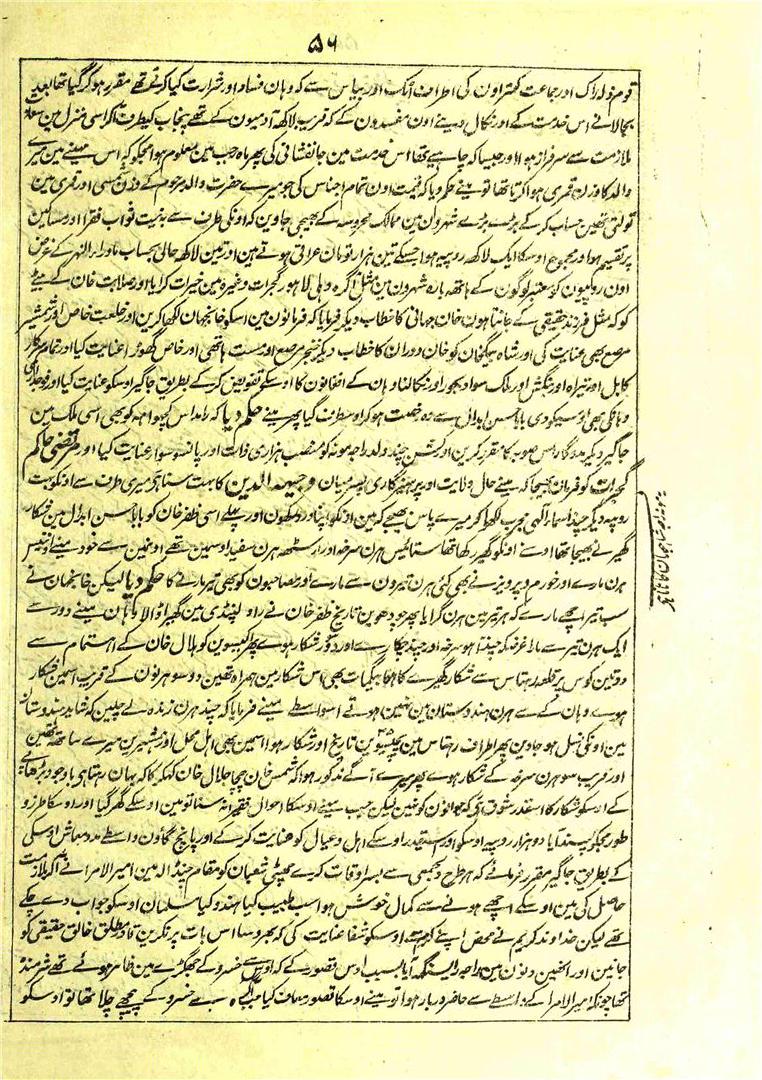 ۵۶
قوم دلہ زاک اور جماعت کھتراون کی اطراف اٹک اور بیاس سے کہ وہان فساد اور شرارت کیا کرتے تھے مقرر ہو کر گیا تھا بعد
بجا لانے اس خدمت کے اور نکال دینے اون مفسدون کے کہ قریب لاکھ آدمیون کے تھے پنجاب کیطرف آکر اسی منزل مین سعادت
ملازمت سے سرفراز ہوا اور جیسا کہ چاہیے تھا اس خدمت مین جانفشانی کی پھر ماہ رجب مین معلوم ہوا مجھکو کہ اس مہینے مین میرے
والد کا وزن قمری ہوا کرتا تھا تو مینے حکم دیا کہ قیمت اون تمام اجناس کی جو میرے حضرت والد مرحوم کے وزن شمسی اور قمری مین
تولتی تھین حساب کر کے بڑے بڑے شہرون مین ممالک محروسہ کے بھیجی جاوین کہ اونکی طرف سے بہ نیت ثواب فقرا اور مساکین
پر تقسیم ہو اور مجموع اوسکا ایک لاکھ روپیہ ہوا جسکے تین ہزار تومان عراقی ہوتے ہین اور تین لاکھ خانی بحساب ماوراء النہر کے غرض
اون روپیون کو معتبر لوگون کے ہاتھ بارہ شہرون مین مثل آگرہ دہلی لاہور گجرات وغیرہ مین خیرات کرایا اور صلابت خان کے بیٹے
کو کہ مثل فرزند حقیقی کے جانتا ہون خان جہانی کا خطاب دیکر فرمایا کہ فرمانون مین اسکو خانجہان لکھا کرین اور خلعت خاص اور شمشیر
مرصع بھی عنایت کی اور شاہ بیگخان کو خان دوران کا خطاب دیکر خنجر مرصع اور مست ہاتھی اور خاص گھوڑا عنایت کیا اور تمام سرکار
کابل اور تیراہ اور بنگش اور ملک سواد بجور اور نکالنا وہان کے افغانون کا اوسکو تفویض کر کے بطریق جاگیر اوسکو عنایت کیا اور فوجداری
وہانکی بھی اوسیکو دی بابا حسن ابدال سے وہ رخصت ہو کر اوسطرف گیا پھر مینے حکم دیا کہ رامداس کچھواہہ کو بھی اسی ملک مین
جاگیر دیکر مددگار اس صوبہ کا مقرر کرین اور کشن چند ولد راجہ مونہ کو منصب ہزاری ذات اور پانسو سوار عنایت کیا اور مرتضی حاکم
گجرات کو فرمان بھیجا کہ مینے حال ولایت اور پرہیزگاری پسر میان وجیہ الدین کا بہت سنا ہے میری طرف سے اونکو بہت
روپیہ دیکر چند اسماء الہی مجرب لکھوا کر میرے پاس بھیجے کہ مین اونکو اپنا ورد رکھون اور پہلے اسی ظفر خان کو بابا حسن ابدال مین شکار
گھیرنے بھیجا تھا اوسنے اونکو گھیر رکھا تھا ستائیس ہرن سرخہ اور اڑسٹھ ہرن سفید اوسمین تھے اونمین سے خود مینے اونتیس
ہرن مارے اور خورم و پرویز نے بھی کئی ہرن تیرون سے مارے اور مصاحبون کو بھی تیر مارنے کا حکم دیا لیکن خانجہان نے
سب تیر اچھے مارے کہ ہر تیر مین ہرن گرایا پھر چودھوین تاریخ ظفر خان نے راولپنڈی مین گھیرا ڈالا وہان مینے دور سے
ایک ہرن تیر سے مارا غرضکہ چند سرخہ اور چند چکارے اور شکار ہوے پھر اکیسوین کو ہلال خان کے اہتمام سے
دو تین کوس پر قلعہ رہتاس سے شکار گھیرنے کا تھا بیگمات بھی اس شکار مین ہمراہ تھین دو سو ہرنون کے قریب اسمین شکار
ہوے وہان کے سے ہرن ہندوستان مین نہین ہوتے اسواسطے مینے فرمایا کہ چند ہرن زندہ لے چلین کہ شاید ہندوستان
مین اونکی نسل ہو جاوین پھر اطراف رہتاس مین پچیسوین تاریخ اور شکار ہوا اسمین بھی اہل محل اور ہمشیرین میرے ساتھ تھین
اور قریب سو ہرن سرخہ کے شکار ہوے پھر میرے آگے مذکور ہوا کہ شمس خان چچا جلال خان کھکر کا کہ یہان رہتا ہی باوجود بڑھاپے
کے اوسکو شکار کا اسقدر شوق ہی کہ جوانون کو نہین لیکن جب مینے اوسکا احوال فقیرانہ سنا تو مین اوسکے گھر گیا اور اوسکا طرز و
طور مجھکو پسند آیا دو ہزار روپیہ اوسکو اور اسیقدر اوسکے اہل و عیال کو عنایت کر کے اور پانچ گانون واسطے مدد معاش اوسکی
کے بطریق جاگیر مقرر فرمائے کہ ہر طرح دلجمعی سے بسر اوقات کرے چھٹی شعبان کو مقام چنڈالہ مین امیر الامرا نے آکر ملازمت
حاصل کی مین اوسکے اچھے ہونے سے کمال خوش ہوا سب طبیب کیا ہندو کیا مسلمان اوسکو جواب دے چکے
تھے لیکن خداوند کریم نے محض اپنے کرم سے اوسکو شفا عنایت کی کہ بھروسا اس بات پر نکرین قادر مطلق خالق حقیقی کو
جانین اور انھین دنون مین راجہ رایسنگہ آیا بسبب اوس قصور کے کہ اوس سے خسرو کے جھگڑے مین ظاہر ہوئے تھے شرمندہ
تھا چونکہ امیر الامرا کے واسطے سے حاضر دربار ہوا تو مینے اوسکا قصور معاف کیا جب خسرو کے پیچھے چلا تھا تو اوسکو